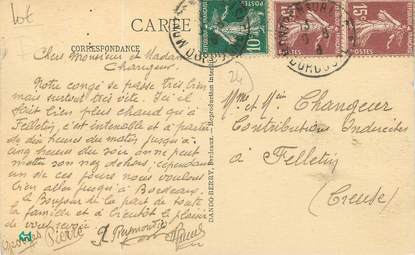 Lot
CARTE
CORRESPONDANCE
Cher Monsieur et Madame
Changeur
Notre congé se passe très bien
mais surtout très vite. Qu'il
fait bien plus chaud qu'à
Felletin, c'est intenable et à partir
de dix heures du matin jusqu'à
cinq heures du soir on ne peut
mettre son nez dehors; cependant
un de ces jours nous voulons
bien aller jusqu'à Bordeaux.
le Bonjour de la part de toute
la famille et à bientôt le plaisir
de vous revoir
Georges Pierre
DANDO-BERRY, Bordeaux. - Reproduction interdite
10
POSTES
15
15
24
Mme et Mr Changeur
Contributions Indirectes
à Felletin
(Creuse)